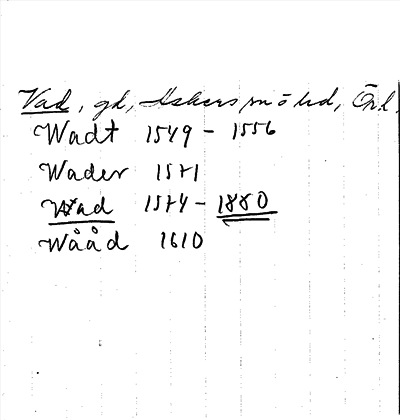 Vad, gd, Askers sn o hd, Örl.
Wadt 1549 - 1556
Wader 1571
Wad 1574 - 1880
Wååd 1610